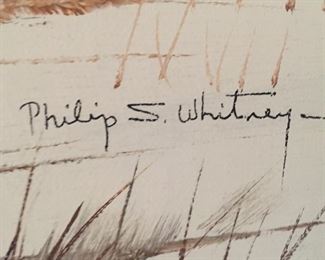 Philip S. Whitney